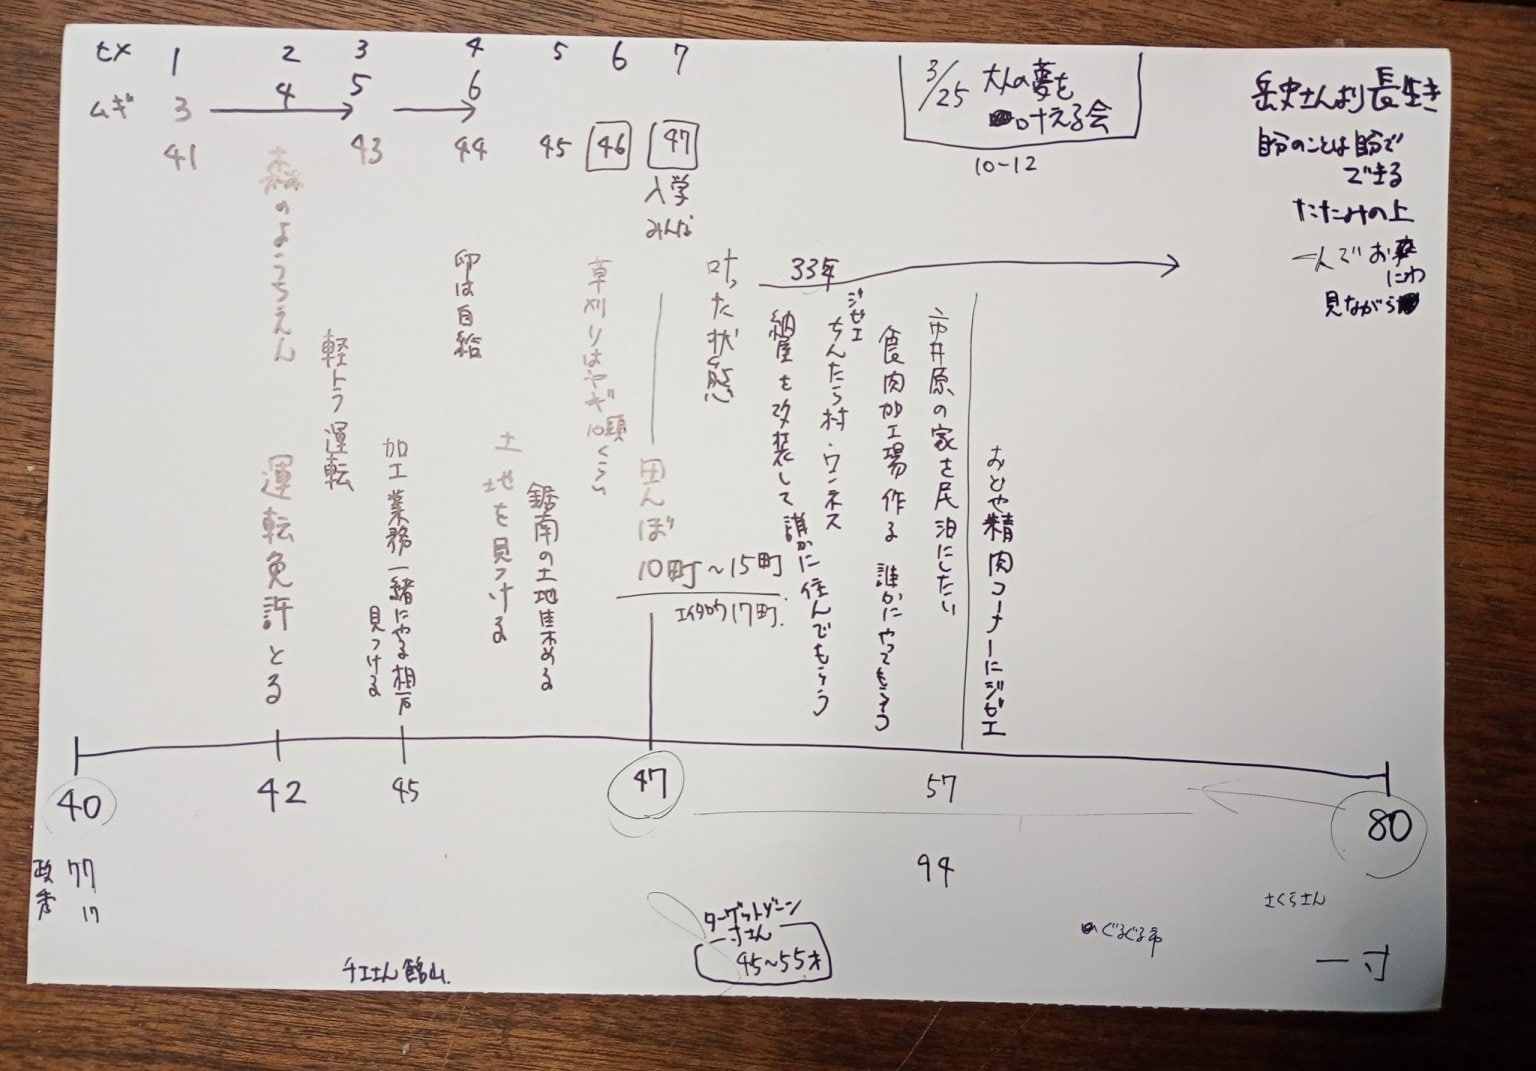 ヒメ 1 2 3 4 5 6 7
ムギ 3 4 5 6
41 43 44 45 46 47
入学
みんな
3/25 大人の夢を
叶える会
10-12
岳史さんより長生き
自分のことは自分で
できる
たたみの上
一人でお
にわ
見ながら
森のようちえん
運転免許とる
軽トラ運転
加工業務一緒にやる相方
見つける
卵は自給
土地を見つける
鋸南の土地集める
草刈りはヤギ10頭くらい
田んぼ
10町~15町
エイタロウ17町.
叶った状態
33年
納屋を改装して誰かに住んでもらう
ジゼエ
ちんたら村・ワンネス
食肉加工場作る 誰かにやってもらう
市井原の家を民泊にしたい
おどや精肉コーナーにジビエ
40 42 45 47 57 80
政秀 77
17
94
ターゲットゾーン
一寸さん
45~55才
チエさん館山.
めぐるぐる市
さくらさん
一寸